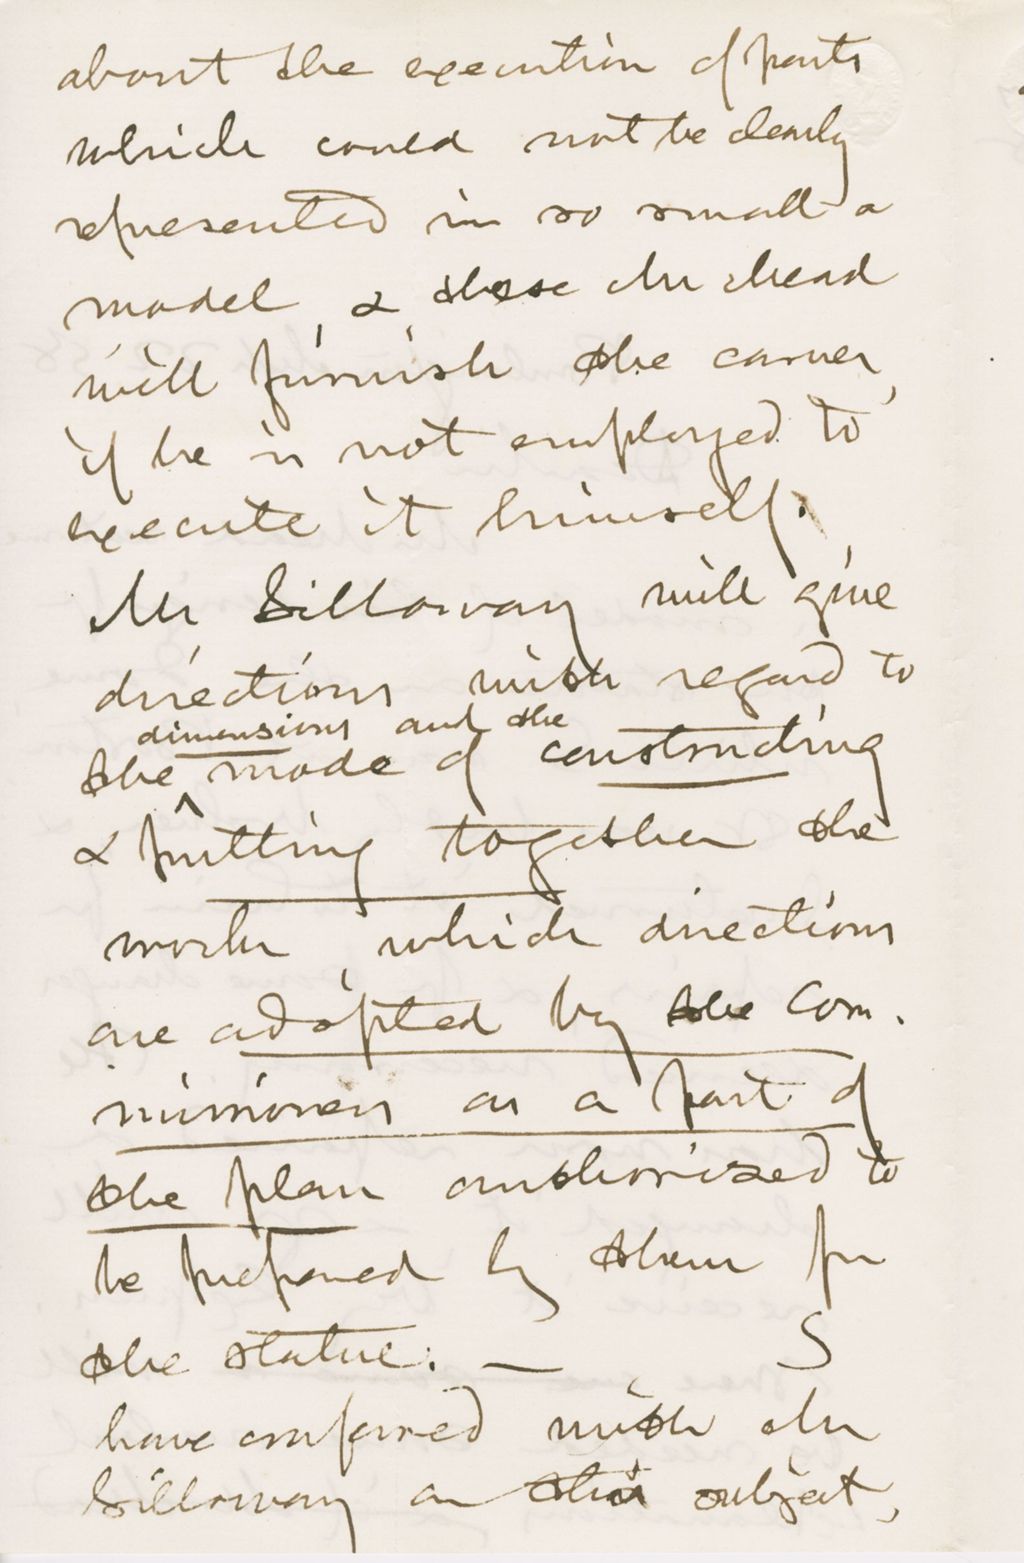 about the execution of parts
which could not be clearly
represented in so small a
model, & these Mr Mead
will furnish the carver,
if he is not employed to
execute it himself.
Mr Silloway will give
directions with regard to
dimensions and the
the mode of constructing
& putting together the
work, which directions
are adopted by the Com.
missioners as a part of
the plan authorized to
be prepared by them for
the statue. — I
have conferred with Mr
Silloway on this subject,